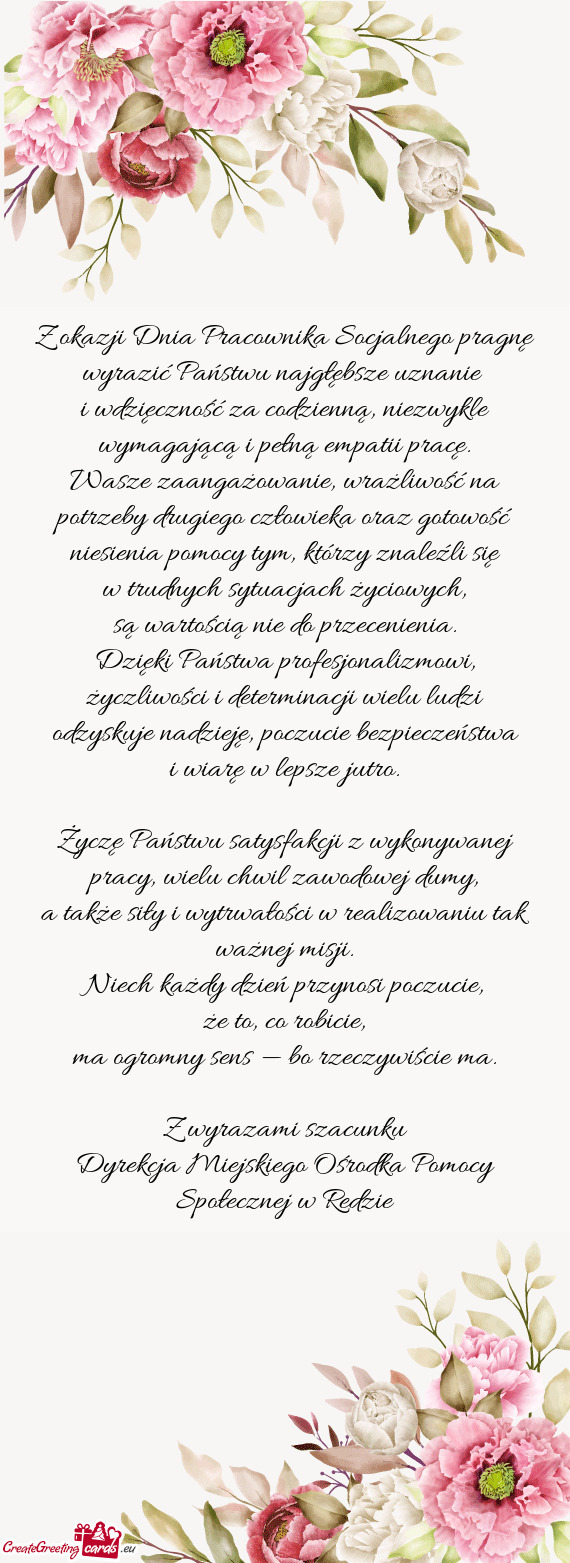 Z okazji Dnia Pracownika Socjalnego pragnę
wyrazić Państwu najgłębsze uznanie
i wdzięczność za codzienną, niezwykle
wymagającą i pełną empatii pracę.
Wasze zaangażowanie, wrażliwość na
potrzeby drugiego człowieka oraz gotowość
niesienia pomocy tym, którzy znaleźli się
w trudnych sytuacjach życiowych,
są wartością nie do przecenienia.
Dzięki Państwa profesjonalizmowi,
życzliwości i determinacji wielu ludzi
odzyskuje nadzieję, poczucie bezpieczeństwa
i wiarę w lepsze jutro.
Życzę Państwu satysfakcji z wykonywanej
pracy, wielu chwil zawodowej dumy,
a także siły i wytrwałości w realizowaniu tak
ważnej misji.
Niech każdy dzień przynosi poczucie,
że to, co robicie,
ma ogromny sens – bo rzeczywiście ma.
Z wyrazami szacunku
Dyrekcja Miejskiego Ośrodka Pomocy
Społecznej w Redzie
CreateGreeting cards .eu